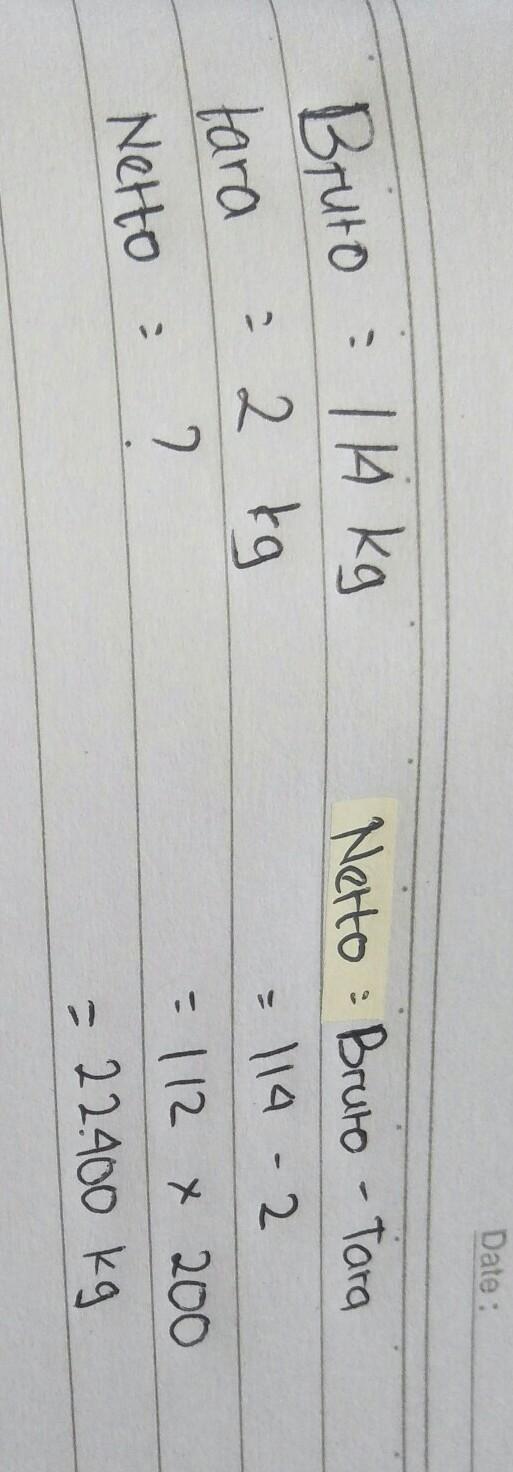 Date :
Bruto = 114 kg
tara = 2 kg
Netto = ?
Netto = Bruto - Tara
= 114 - 2
= 112 x 200
= 22.400 kg